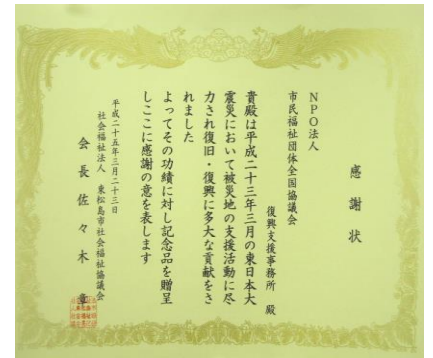 感謝状
NPO法人
市民福祉団体全国協議会
復興支援事務所 殿
貴殿は平成二十三年三月の東日本大
震災において被災地の支援活動に尽
力され復旧・復興に多大な貢献をさ
れました
よってその功績に対し記念品を贈呈
しここに感謝の意を表します
平成二十五年三月二十三日
社会福祉法人 東松島市社会福祉協議会
会長 佐々木 章